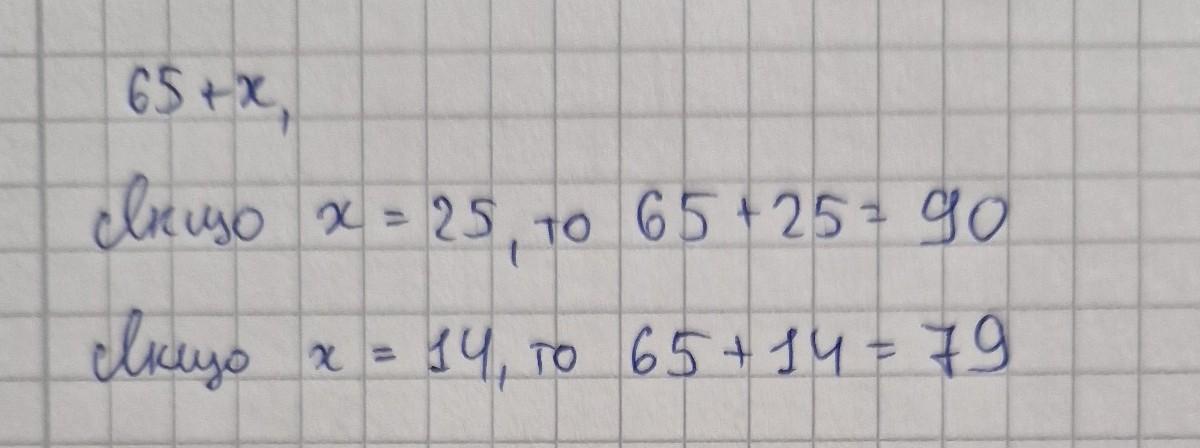 65 + x,
Якщо x = 25, то 65 + 25 = 90
Якщо x = 14, то 65 + 14 = 79